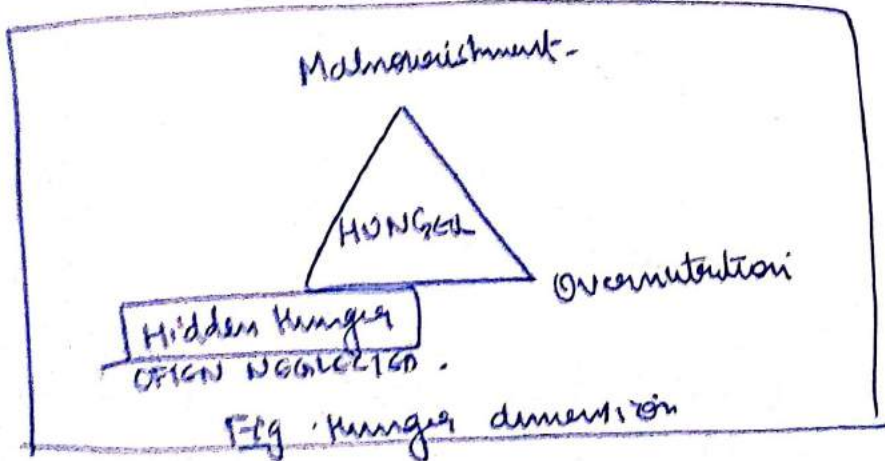 Malnourishment-
HUNGER
Overnutrition
Hidden Hunger
OFTEN NEGLECTED.
Fig. Hunger dimension